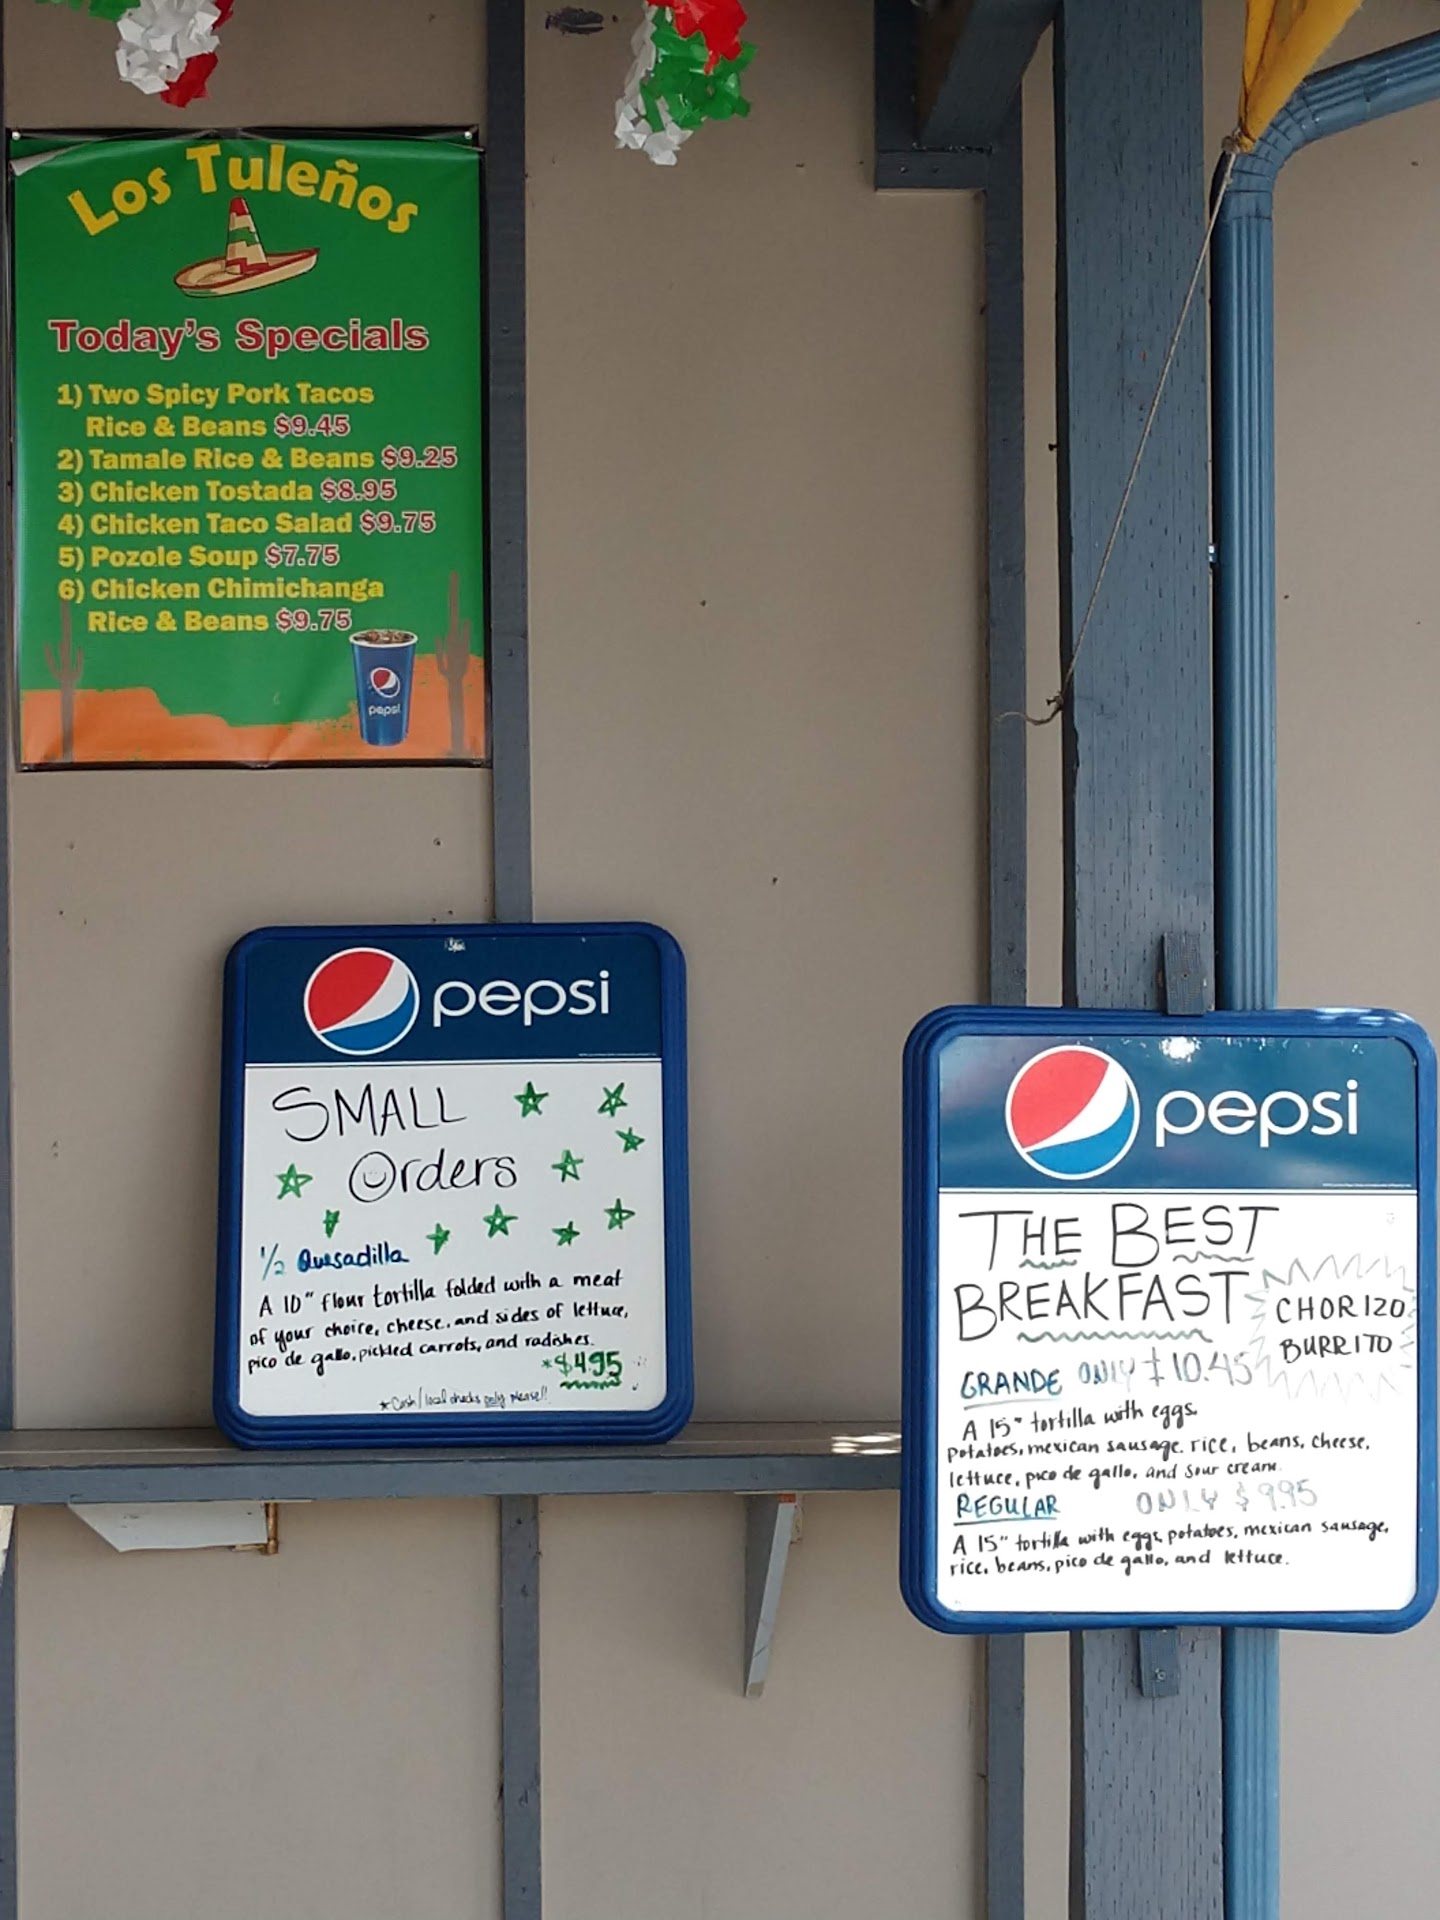 Los Tuleños
Today's Specials
1) Two Spicy Pork Tacos
Rice & Beans $9.45
2) Tamale Rice & Beans $9.25
3) Chicken Tostada $8.95
4) Chicken Taco Salad $9.75
5) Pozole Soup $7.75
6) Chicken Chimichanga
Rice & Beans $9.75
pepsi
pepsi
SMALL
Orders
1/2 Quesadilla
A 10" flour tortilla folded with a meat
of your choice, cheese, and sides of lettuce,
pico de gallo, pickled carrots, and radishes.
*$4.95
*Cash/local checks only please!!
pepsi
THE BEST
BREAKFAST
CHORIZO
BURRITO
GRANDE ONLY $10.45
A 15" tortilla with eggs,
potatoes, mexican sausage, rice, beans, cheese,
lettuce, pico de gallo, and sour cream.
REGULAR ONLY $9.95
A 15" tortilla with eggs, potatoes, mexican sausage,
rice, beans, pico de gallo, and lettuce.